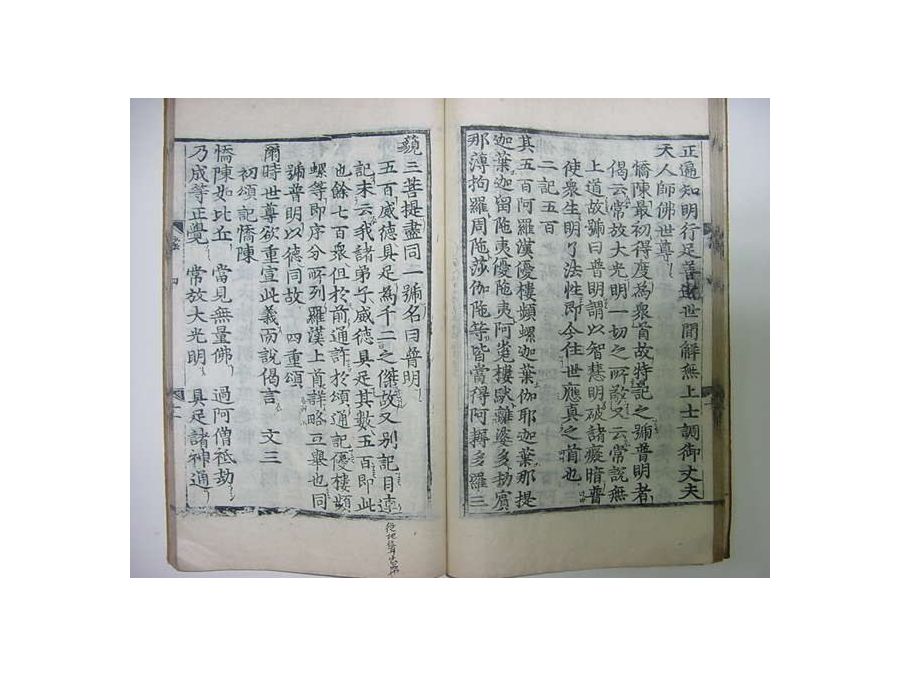 正遍知明行足善逝世間解無上士調御丈夫
天人師佛世尊
憍陳最初得度為衆首故特記之號普明者
偈云常放大光明一切之所敬又云常說無
上道故號曰普明謂以智慧明破諸癡暗普
使衆生明了法性即今住世應真之首也
二記五百
其五百阿羅漢優樓頻螺迦葉伽耶迦葉那提
迦葉迦留陁夷優陁夷阿㝹樓馱離婆多劫賓
那薄拘羅周陁莎伽陁等皆當得阿耨多羅三
藐三菩提盡同一號名曰普明
五百威德具足為千二之傑故又別記目連
記末云我諸弟子威德具足其數五百即此
也餘七百衆但於前通許於頌通記優樓頻
螺等即序分所列羅漢上首詳略互舉也同
號普明以德同故 四重頌
爾時世尊欲重宣此義而說偈言 文三
初頌記憍陳
憍陳如比丘 當見無量佛 過阿僧祇劫
乃成等正覺 常放大光明 具足諸神通